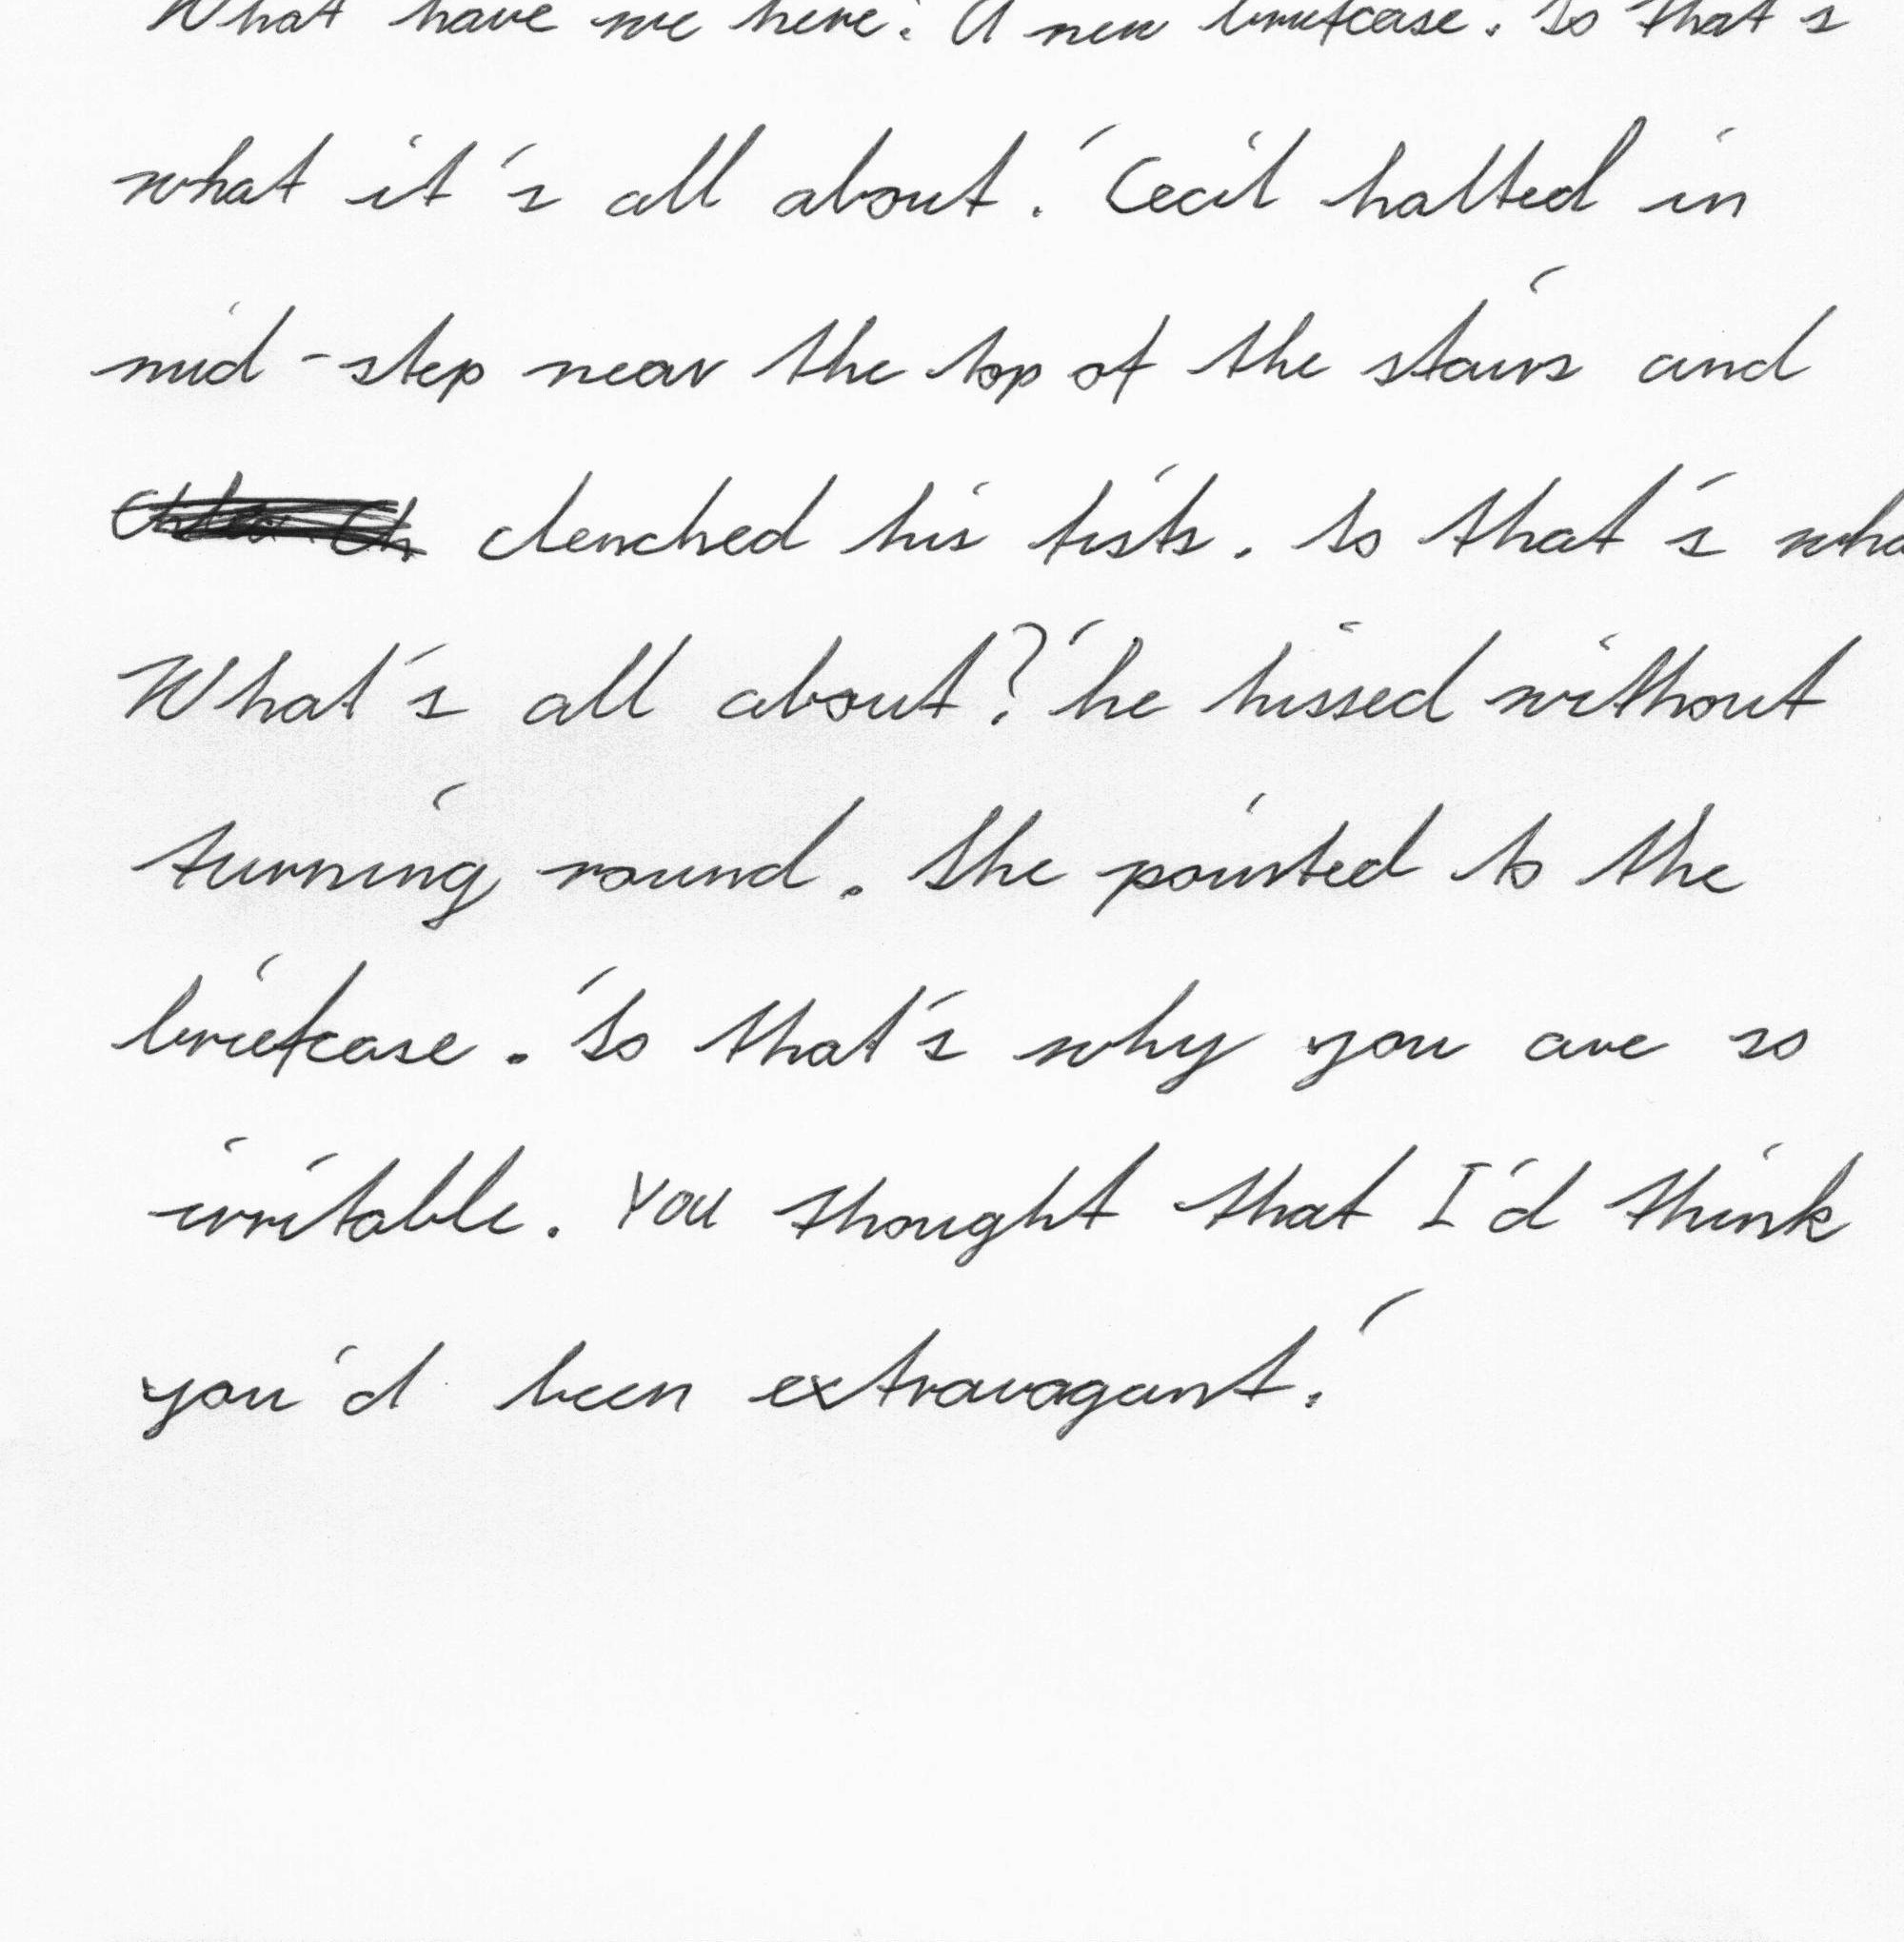 What have we here? A new briefcase? So that's
what it's all about.' Cecil halted in
mid-step near the top of the stairs and
clenched his fists. So that's
What's all about?' he hissed without
turning round. She pointed to the
briefcase. 'So that's why you are so
irritable. You thought that I'd think
you'd been extravagant.'